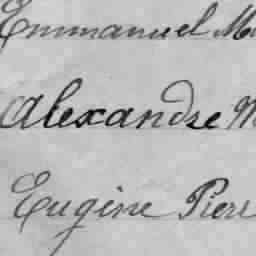 Emmanuel M
Alexandre M
Eugène Pierr